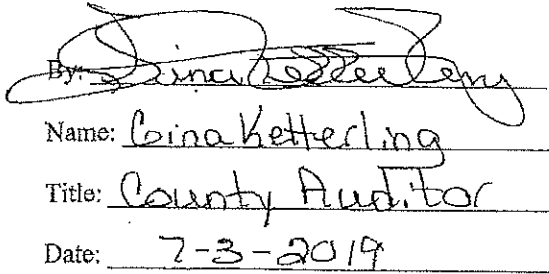 By: Gina Ketterling
Name: Gina Ketterling
Title: County Auditor
Date: 7-3-2019